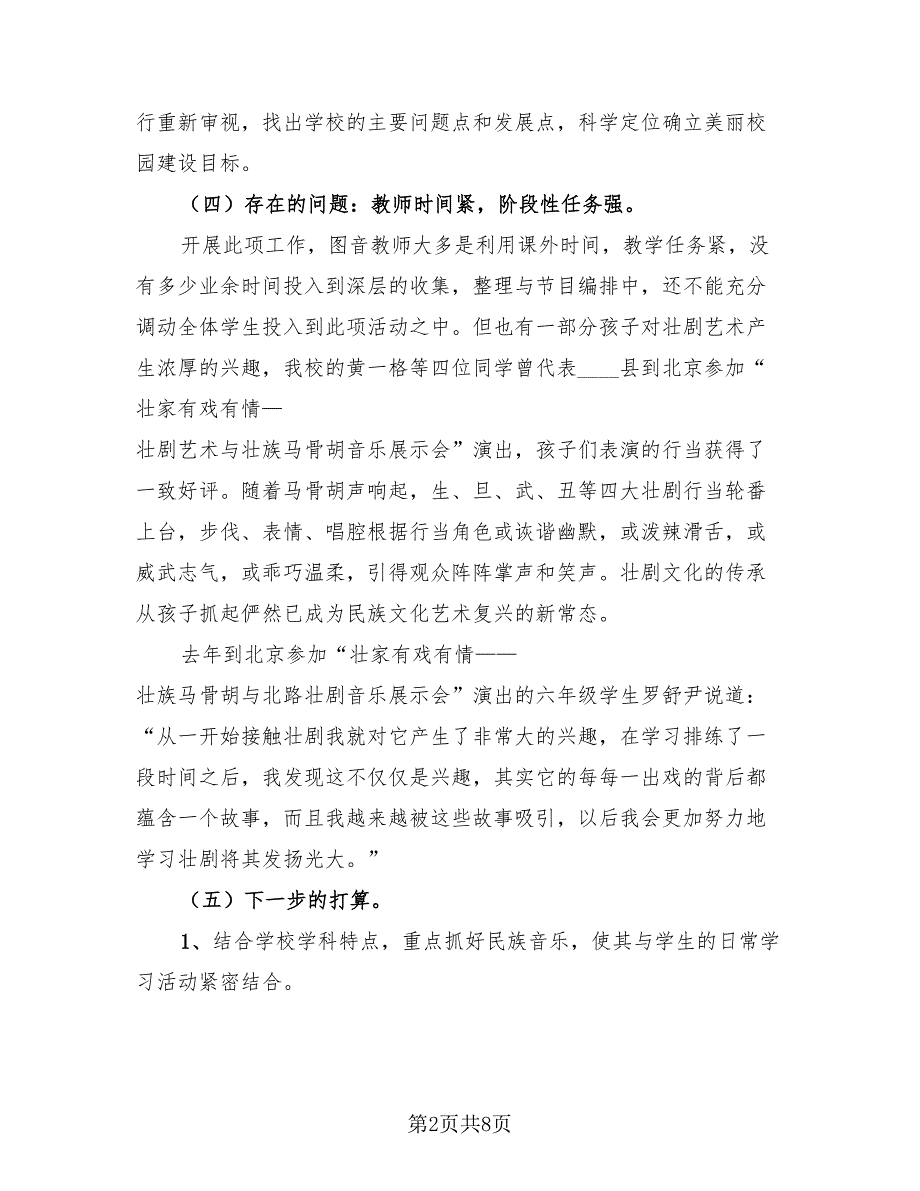 行重新审视，找出学校的主要问题点和发展点，科学定位确立美丽校
园建设目标。
（四）存在的问题：教师时间紧，阶段性任务强。
开展此项工作，图音教师大多是利用课外时间，教学任务紧，没
有多少业余时间投入到深层的收集，整理与节目编排中，还不能充分
调动全体学生投入到此项活动之中。但也有一部分孩子对壮剧艺术产
生浓厚的兴趣，我校的黄一格等四位同学曾代表____县到北京参加“
壮家有戏有情—
壮剧艺术与壮族马骨胡音乐展示会”演出，孩子们表演的行当获得了
一致好评。随着马骨胡声响起，生、旦、武、丑等四大壮剧行当轮番
上台，步伐、表情、唱腔根据行当角色或诙谐幽默，或泼辣滑舌，或
威武志气，或乖巧温柔，引得观众阵阵掌声和笑声。壮剧文化的传承
从孩子抓起俨然已成为民族文化艺术复兴的新常态。
去年到北京参加“壮家有戏有情——
壮族马骨胡与北路壮剧音乐展示会”演出的六年级学生罗舒尹说道：
“从一开始接触壮剧我就对它产生了非常大的兴趣，在学习排练了一
段时间之后，我发现这不仅仅是兴趣，其实它的每每一出戏的背后都
蕴含一个故事，而且我越来越被这些故事吸引，以后我会更加努力地
学习壮剧将其发扬光大。”
（五）下一步的打算。
1、结合学校学科特点，重点抓好民族音乐，使其与学生的日常学
习活动紧密结合。
第2页共8页